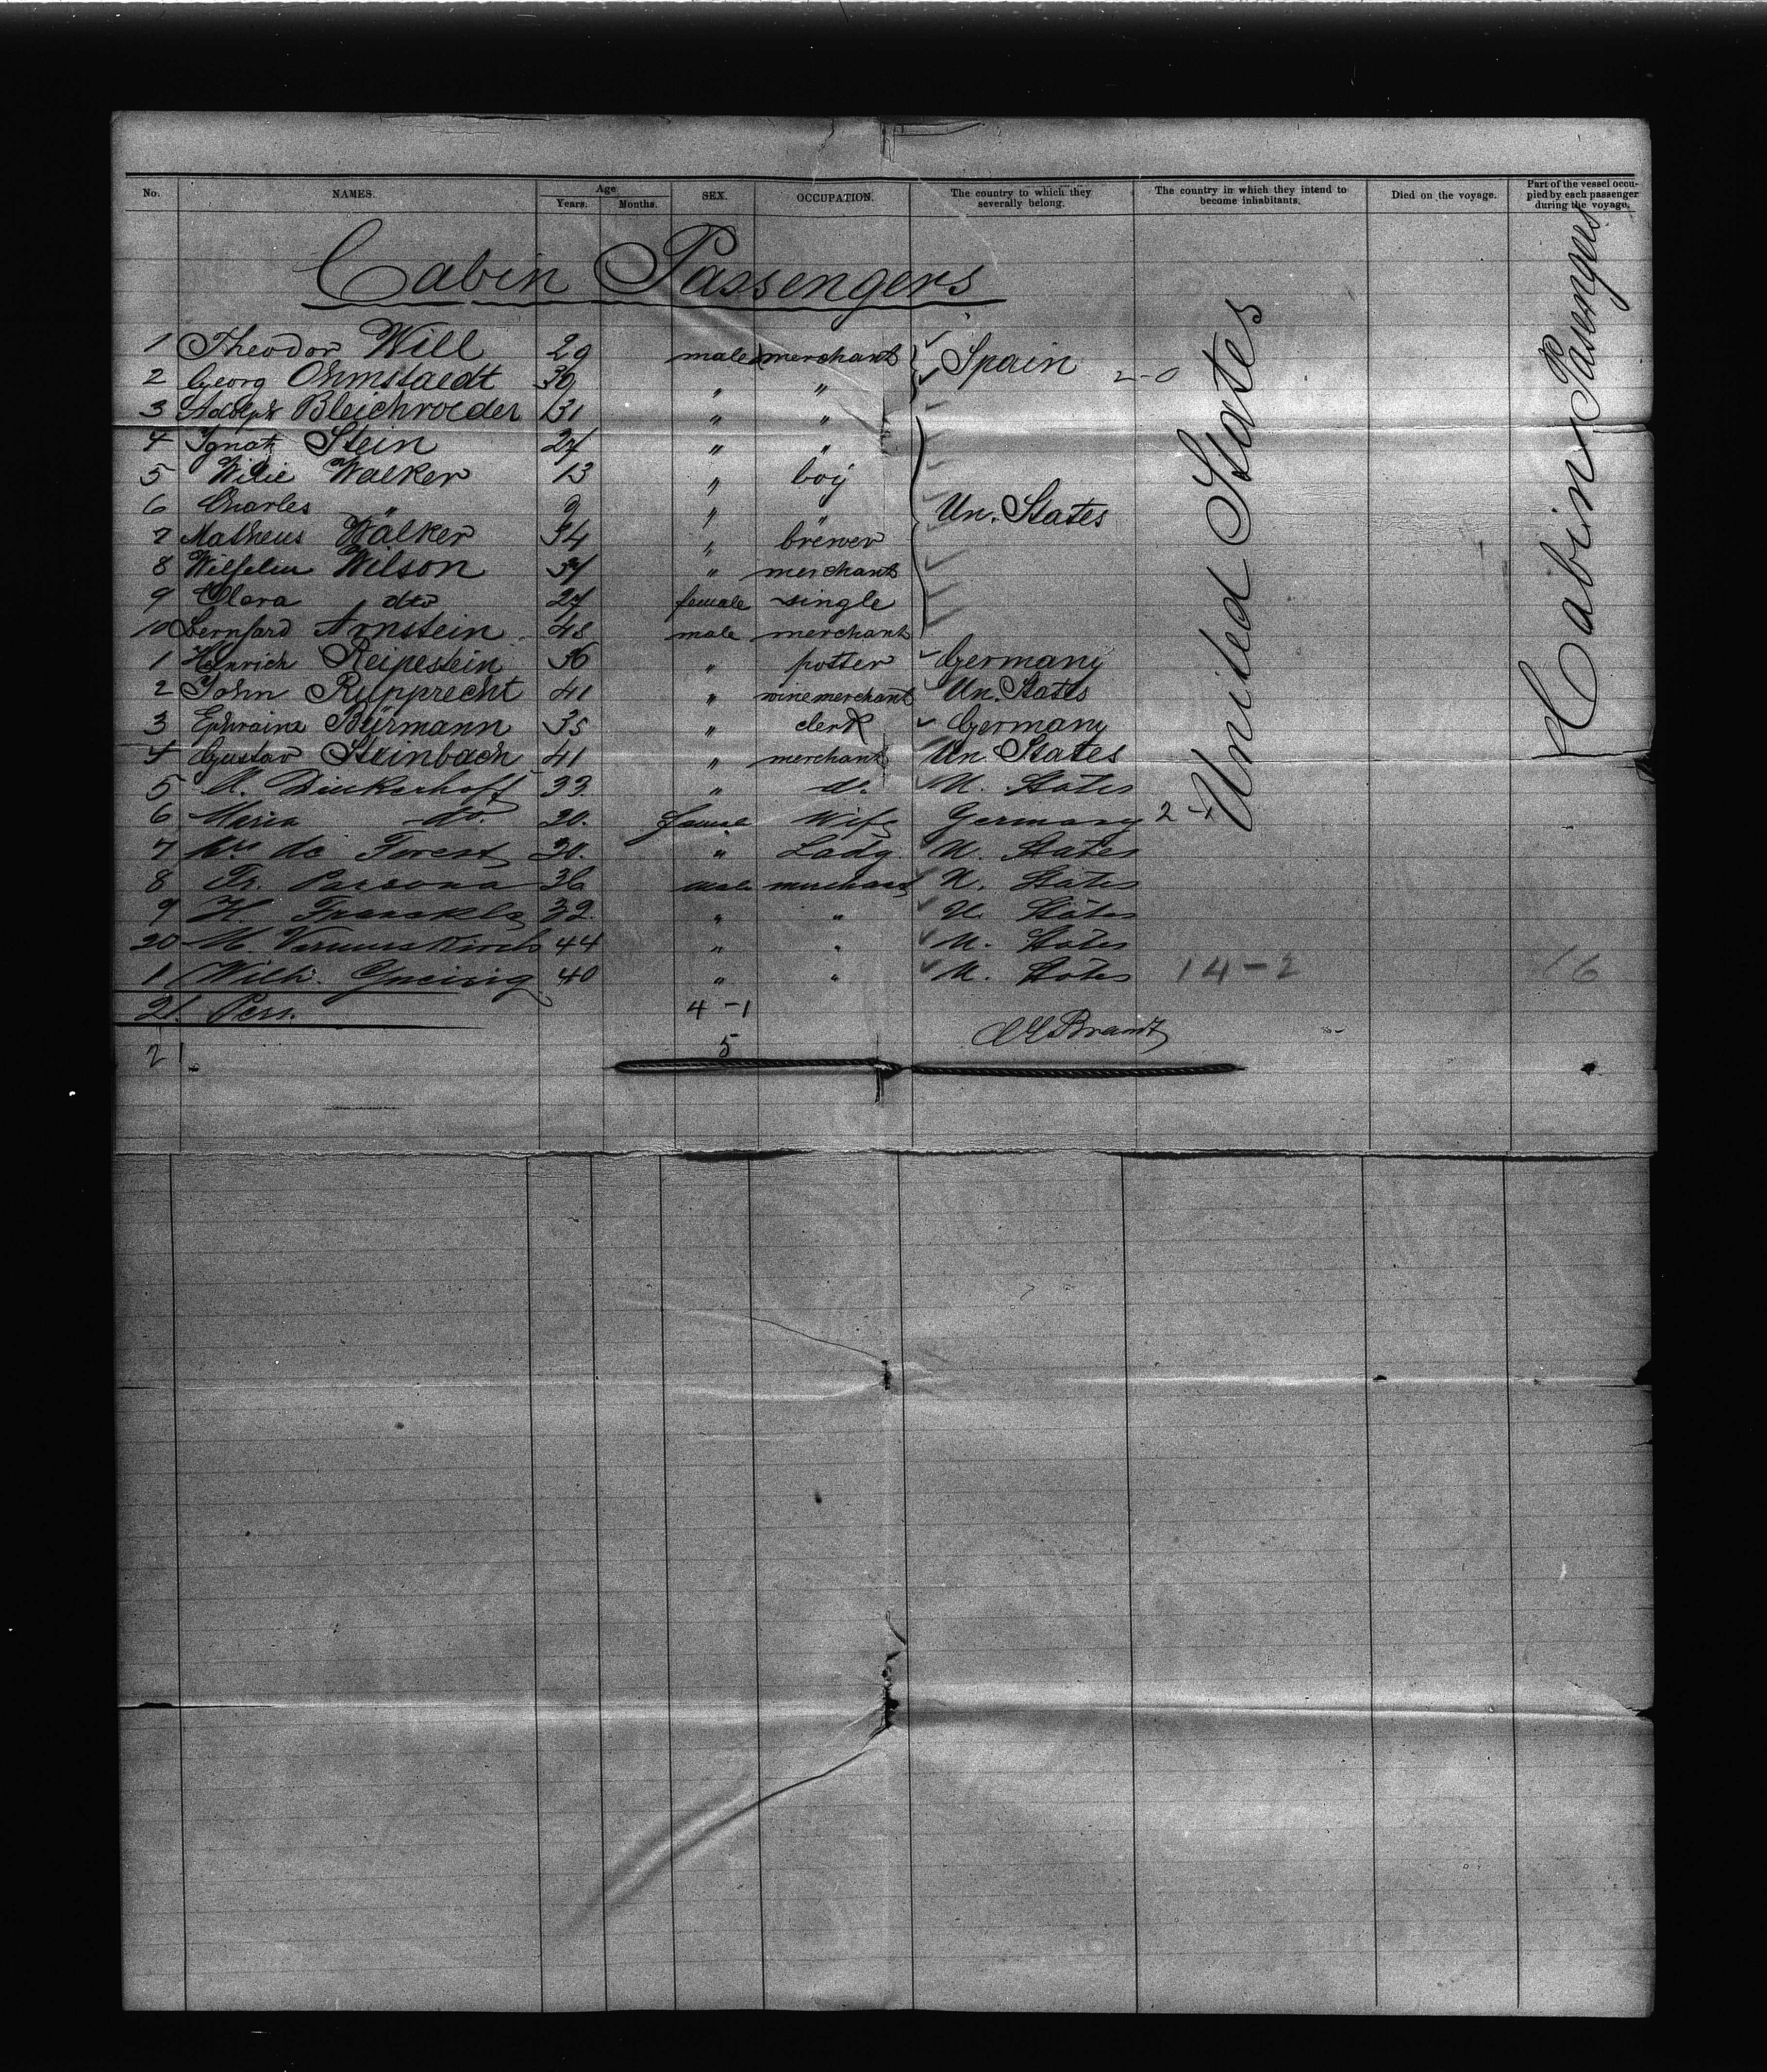 No. NAMES. Age Years. Months. SEX. OCCUPATION. The country to which they severally belong. The country in which they intend to become inhabitants. Died on the voyage. Part of the vessel occupied by each passenger during the voyage.
Cabin Passengers
1 Theodor Will 29 male merchant Spain 2-0
2 Georg Ohmstaedt 30 " "
3 Adolph Bleichroeder 31 " "
4 Ignatz Stein 24 " "
5 Wilie Walker 13 " boy
6 Charles " 9 " " Un. States
7 Matheus Walker 34 " brewer
8 Wilhelm Wilson 34 " merchant
9 Clara dto 24 female single
10 Bernhard Arnstein 48 male merchant
1 Heinrich Reipestein 36 " potter Germany
2 John Rupprecht 41 " winemerchant Un. States
3 Ephraim Bürmann 35 " clerk Germany
4 Gustav Steinbach 41 " merchant Un. States
5 A. Dinkerhoff 33 " do. U. States
6 Maria do. 20. female Wife Germany 2-1
7 de Forest 30. " Lady. U. States
8 Fr. Parsons 36 male merchant U. States
9 H. 32. " " U. States
20 M. 44 " " U. States
1 Wilh. 40 " " U. States 14-2 16
United States
Cabin Passengers
21. Pers. 4-1
21. 5 Brandt